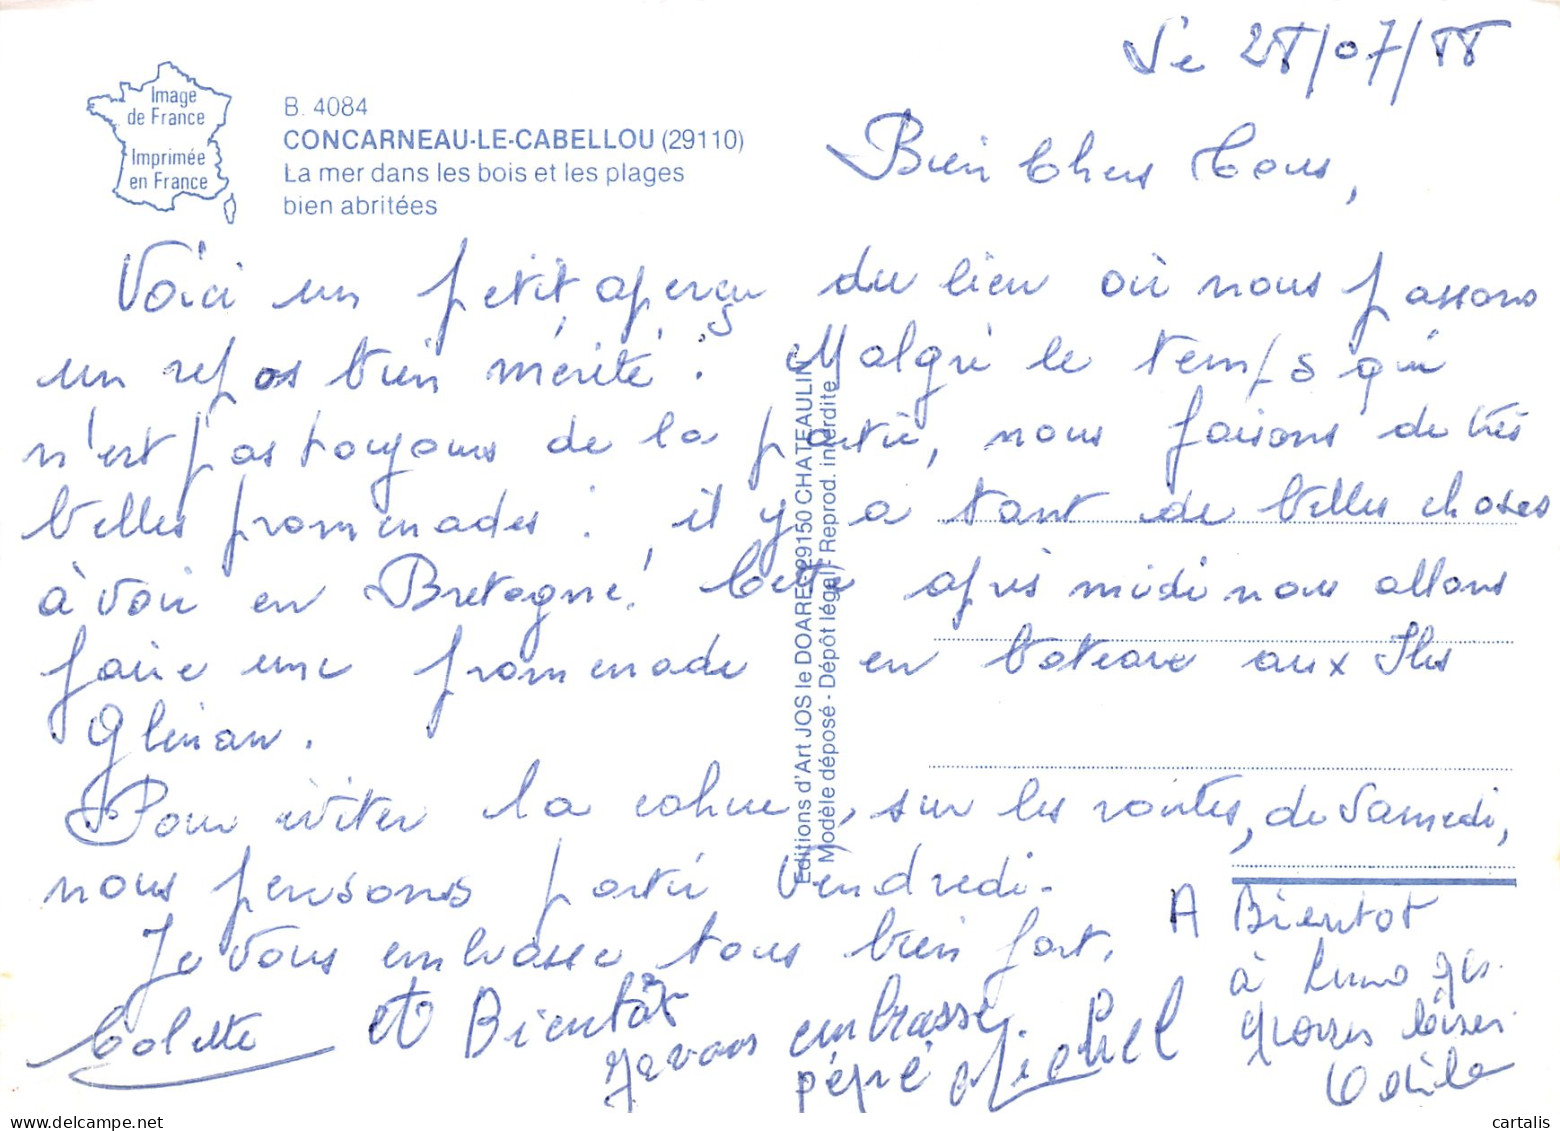 Le 28/07/88
Image
de France
Imprimée
en France
B. 4084
CONCARNEAU-LE-CABELLOU (29110)
La mer dans les bois et les plages
bien abritées
Bien Chers Tous,
Voici un petit aperçu du lieu où nous passons
un repos bien mérité. Malgré le temps qui
n'est pas toujours de la partie, nous faisons de très
belles promenades : il y a tant de belles choses
à voir en Bretagne ! Cette après midi nous allons
faire une promenade en bateau aux Iles
Glénan.
Pour éviter la cohue, sur les routes, de Samedi,
nous pensons partir Vendredi.
Je vous embrasse tous bien fort.
Colette
et Bientôt
Je vous embrasse.
pépé Michel
A Bientot
à Limoges.
Grosses bises.
Odile
Editions d'Art JOS le DOARE 29150 CHATEAULIN
Modèle déposé - Dépôt légal - Reprod. interdite
cartalis